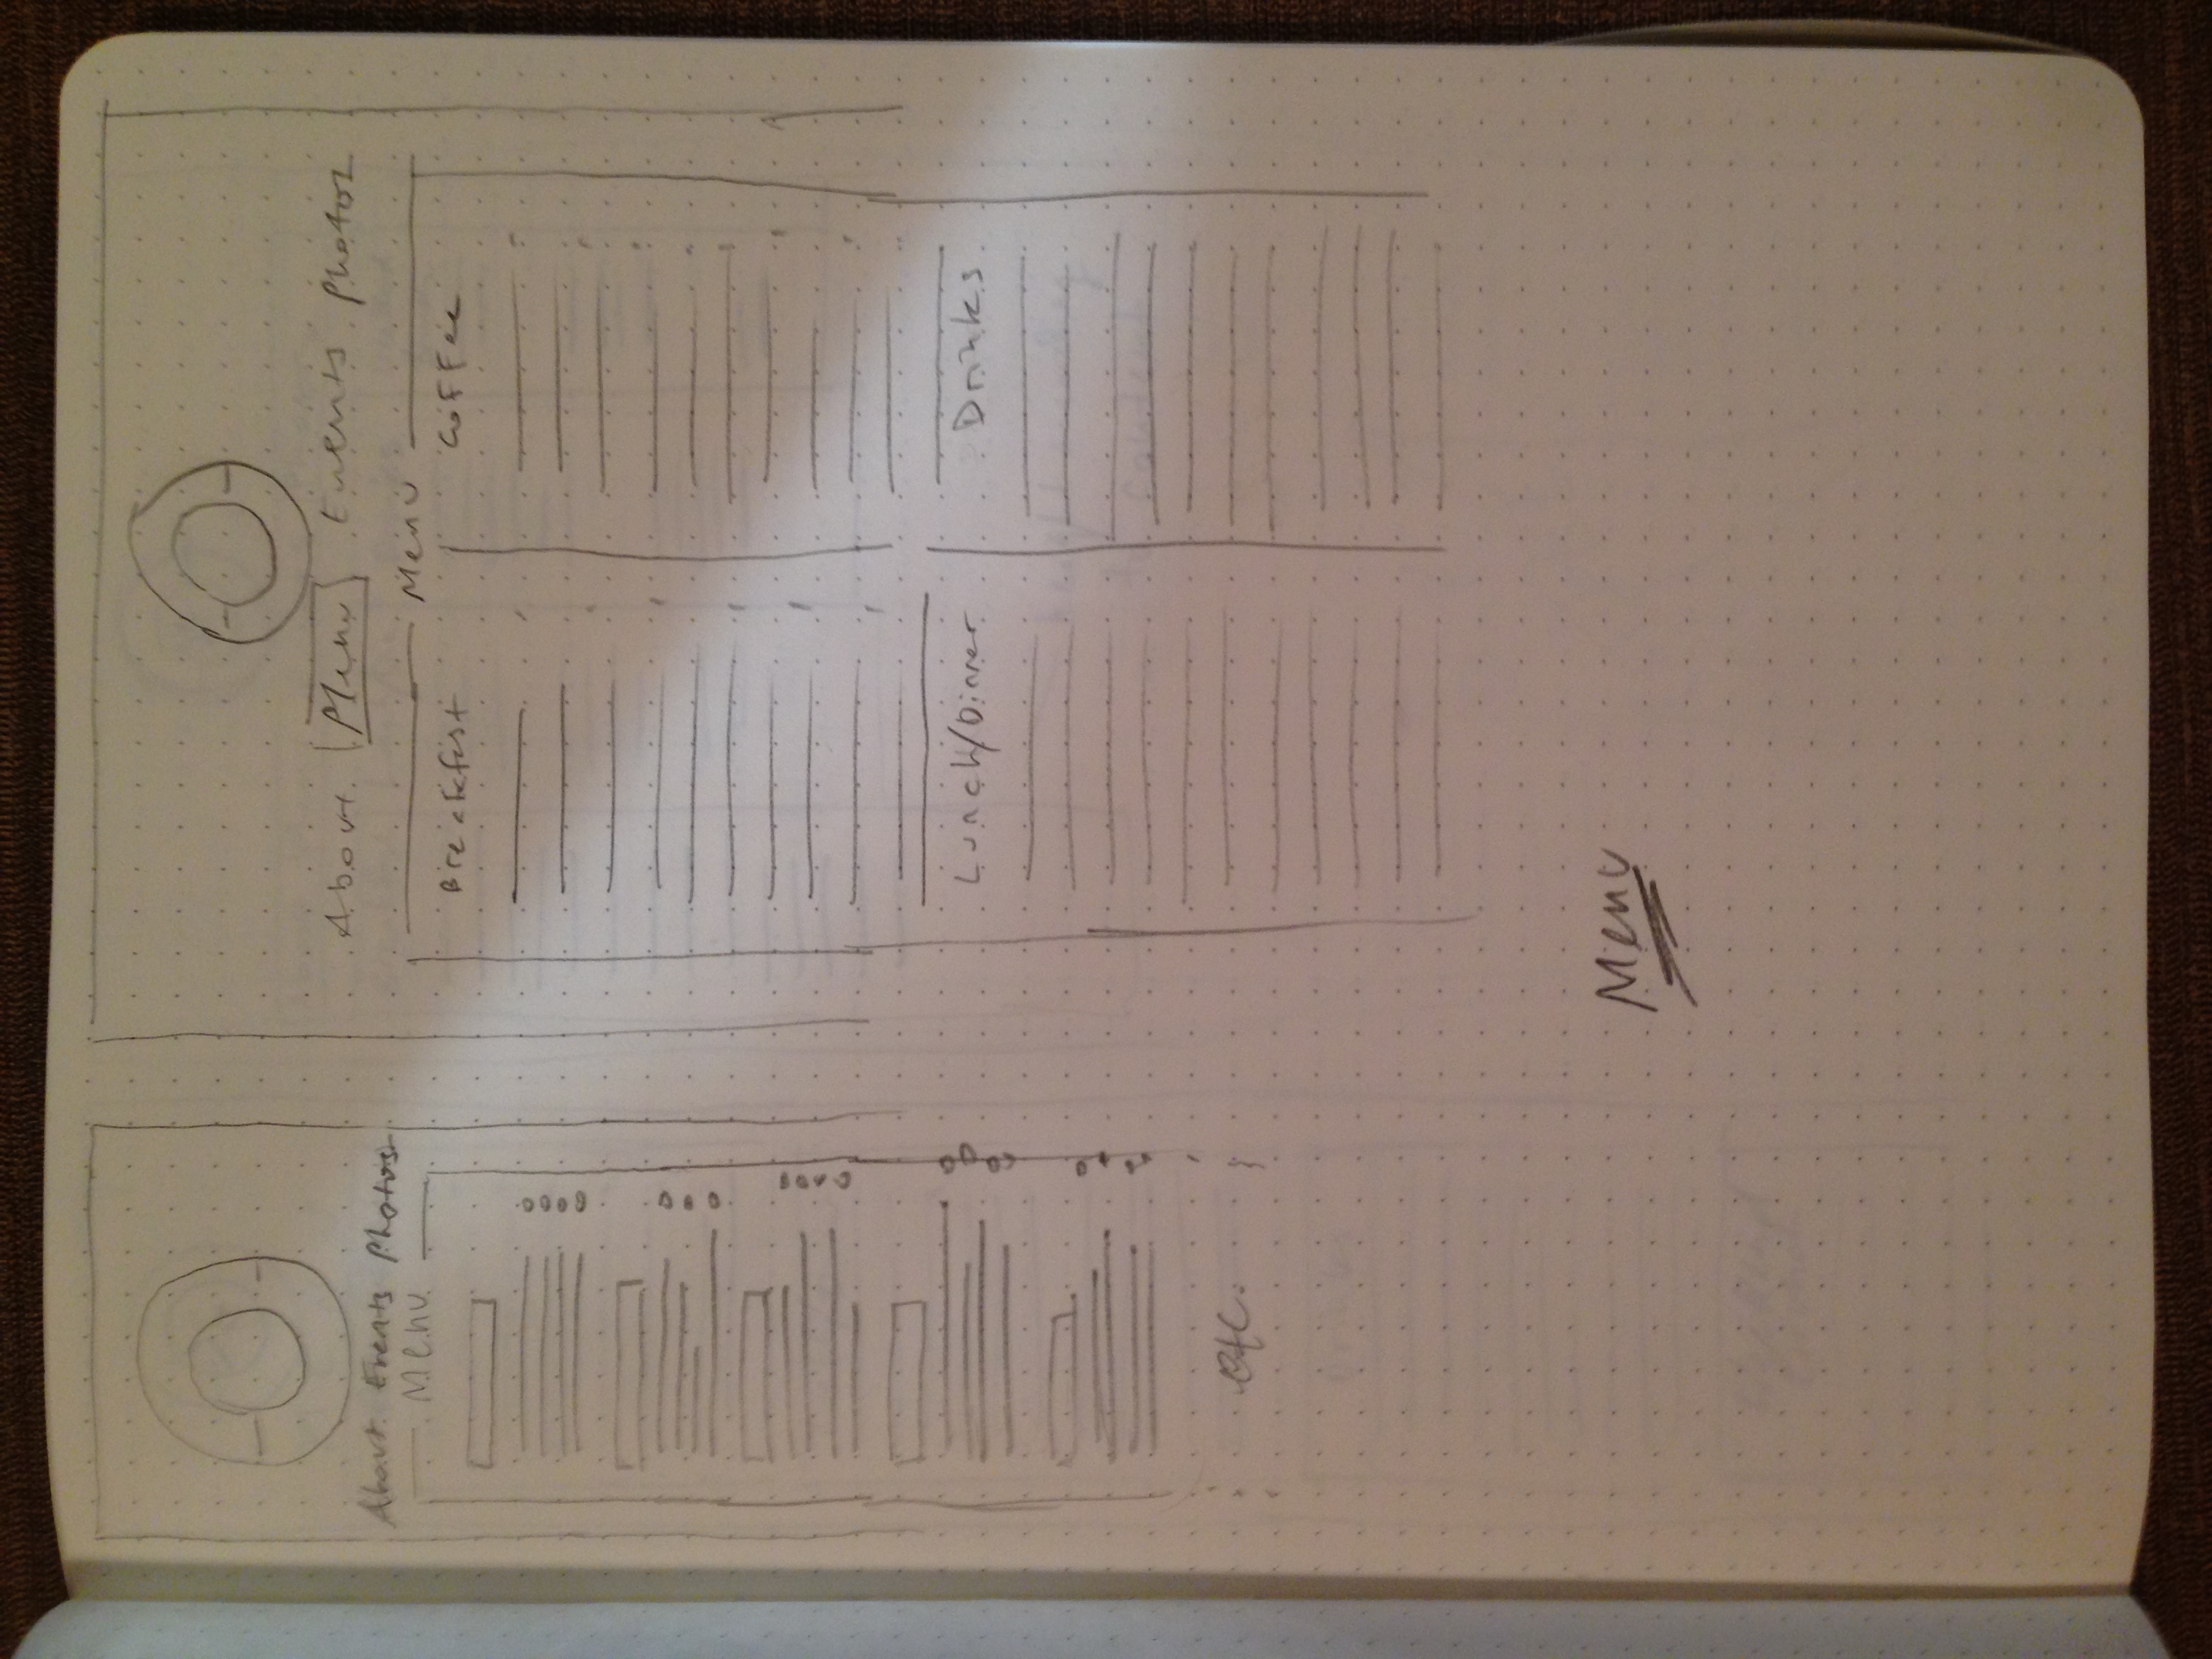 About Events Photos
Menu
etc.
About Menu Events Photos
Menu
Breakfast
Coffee
Lunch/Dinner
Drinks
Menu